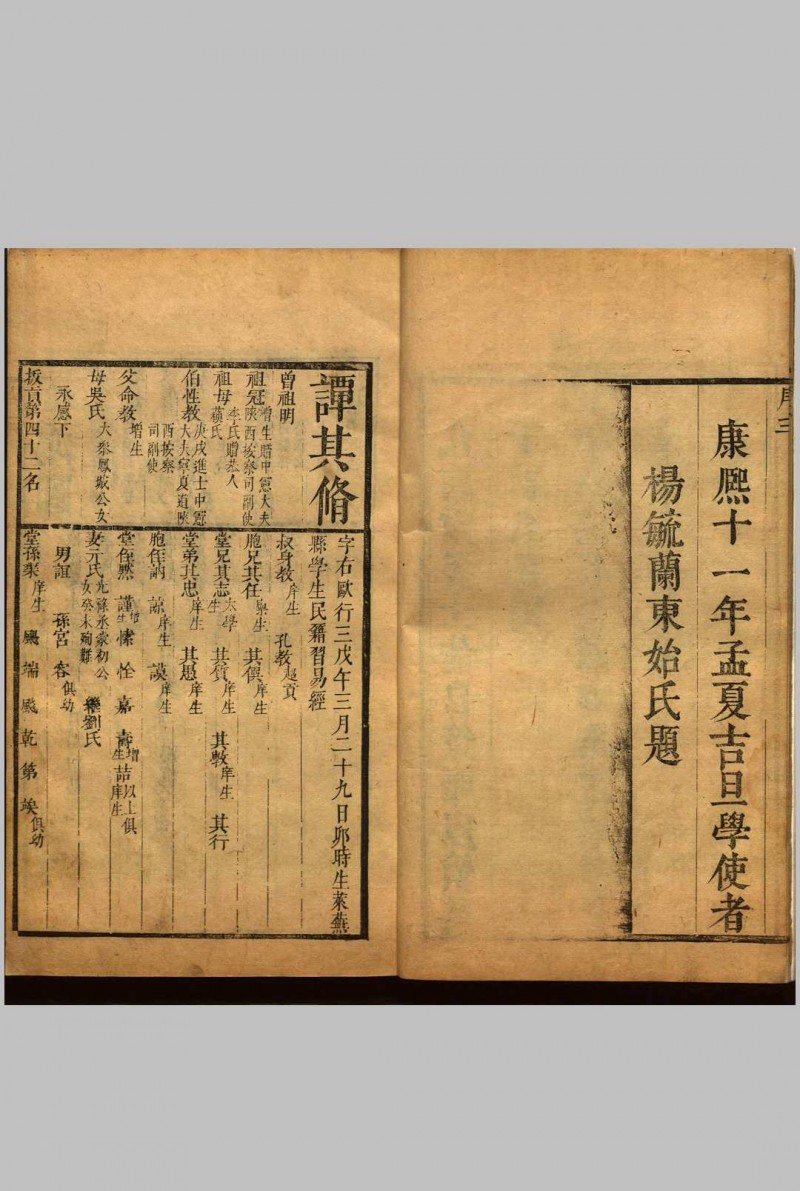 序三
康熙十一年孟夏吉旦學使者
楊毓蘭東始氏題
譚其脩
字右歐行三戊午三月二十九日卯時生萊蕪
縣學生民籍習易經
曾祖明
祖冠增生贈中憲大夫陝西按察司副使
祖母李氏贈恭人
伯性教庚戌進士中憲大夫寧夏道陝西按察司副使
父命教增生
母吳氏大參鳳城公女
永感下
拔貢第四十二名
叔身教庠生 孔教選貢
胞兄其任庠生 其僎庠生
堂兄其志太學生 其質庠生 其斆庠生 其行
堂弟其忠庠生 其愚庠生
胞侄訥 諒庠生 謨庠生
堂侄然 謹增生 愫 恮 嘉 壽增生 詰庠生以上俱
妻亓氏光祿丞象初公女癸未殉難 繼劉氏
男誼 孫宮 容俱幼
堂孫彩庠生 颺 端 颷 乾 第 竢俱幼